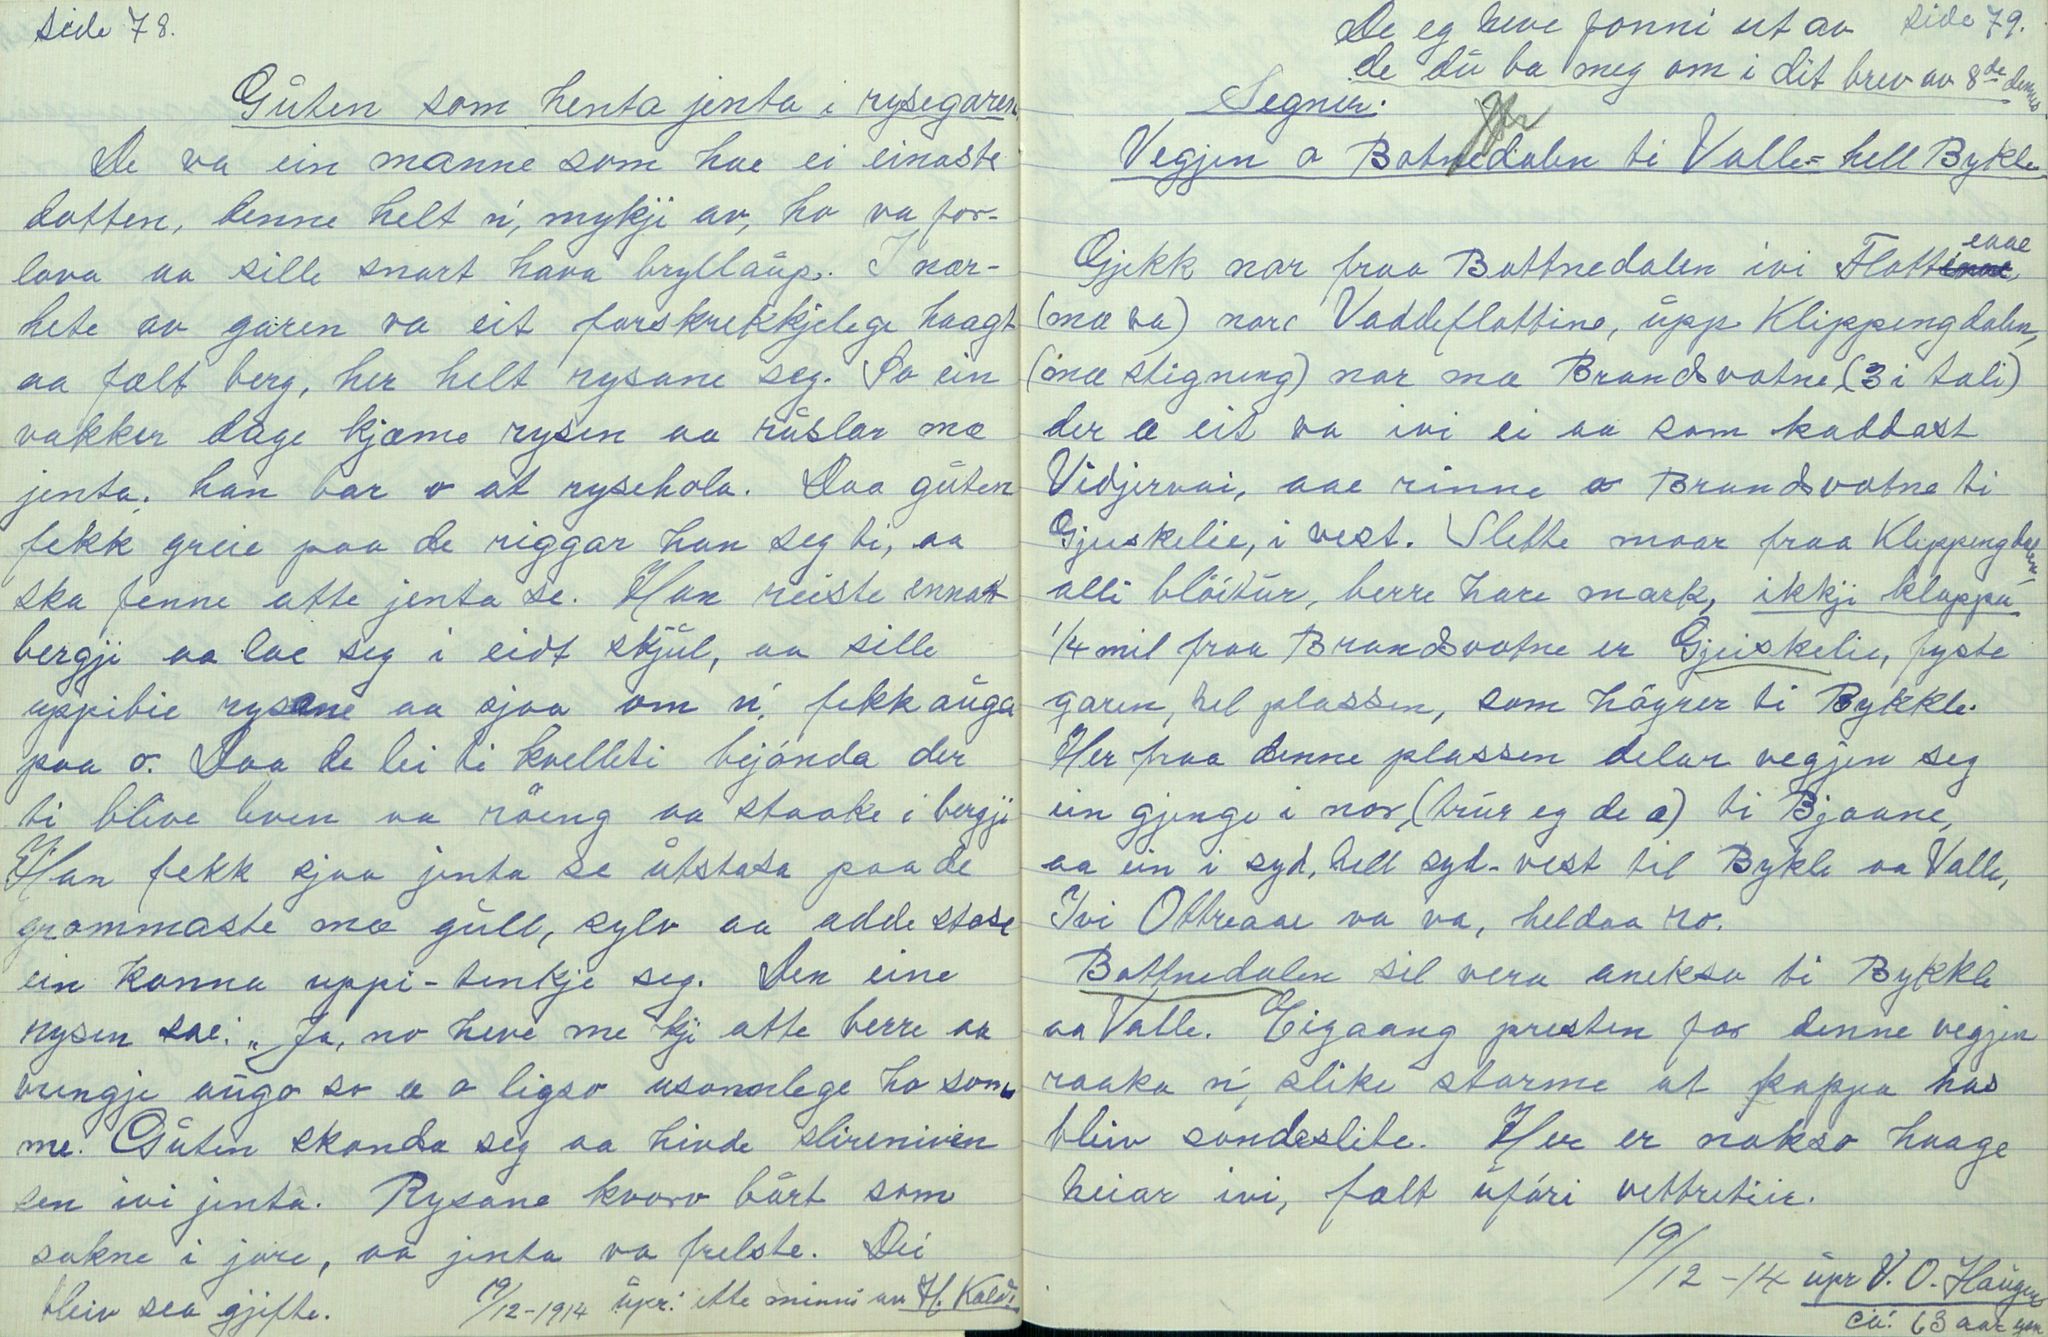 side 78.
Gůten som henta jenta i rysegaren
De va ein manne som hae ei einaste
dotten, denne helt n', mykji av, ho va for-
lova aa sille snart hava bryllaůp. I nær-
hete av garen va eit forskrekkjelege haagt
aa fælt berg, her helt rysane seg. So ein
vakker dage kjæme rysen aa růslar mæ
jenta; han bar o at rysehola. Daa gůten
fekk greie paa de riggar han seg ti, aa
ska fenne atte jenta se. Han reiste innatt
bergji aa lae seg i eidt skjůl, aa sille
uppibie rysane aa sjaa om n', fekk aůga
paa o. Daa de lei ti kvelleti bejónda der
ti blive leven va röeng aa staake i bergji
Han fekk sjaa jenta se ůtstasa paa de
grommaste mæ gůll, sylv aa adde stase
ein konna uppi-tenkje seg. Den eine
rysen sae: „Ja, no heve me kji atte berre aa
vengje aůgo so æ o ligso usonnlege ho som
me. Gůten skonda seg aa hivde slireniven
sen ivi jenta. Rysane kvorv bůrt som
sokne i jore, aa jenta va frelste. Dei
bleiv sea gjifte. 19/12-1914 ůpr: ette minni av H. Kald.
De eg heve fonni ut av side 79.
de dů ba meg om i dit brev av 8de dennes
Segner.
Jfr
Vegjen o Botnedalen ti Valle- hell Bykle
Gjekk nor fraa Bottnedalen ivi Flottinne eaae
(mæ va) nor Vaddeflottine, ůpp Klippengdalen,
(mæ stigneng) nor mæ Brandsvotne (3 i tali)
der æ eit va ivi ei aa som kaddast
Vidjervai, aae rinne o Brandsvotne ti
Gjeiskelie, i vest. Slette moar fraa Klippengdalen,
alli blöitůr, berre hare mark, ikkji kloppa
1/4 mil fraa Brandsvotne er Gjeiskelie, fyste
garen, hel plassen, som höyrer ti Bykkle.
Her fraa denne plassen delar vegjen seg
ein gjenge i nor, (trůr eg de a) ti Bjaane,
aa ein i syd, hell syd-vest til Bykle aa Valle,
Ivi Ottreaae va va, heldaa ro.
Bottnedalen sil vera aneksa ti Bykkle
aa Valle. Eigaang presten for denne vegjen
raaka n', slike storme at kappa has
bleiv sondeslite. Her er nokso haage
heiar ivi, fælt ůföri vettretiie.
19/12-14 ůpr V. O. Haůgen
ca: 63 aar gam